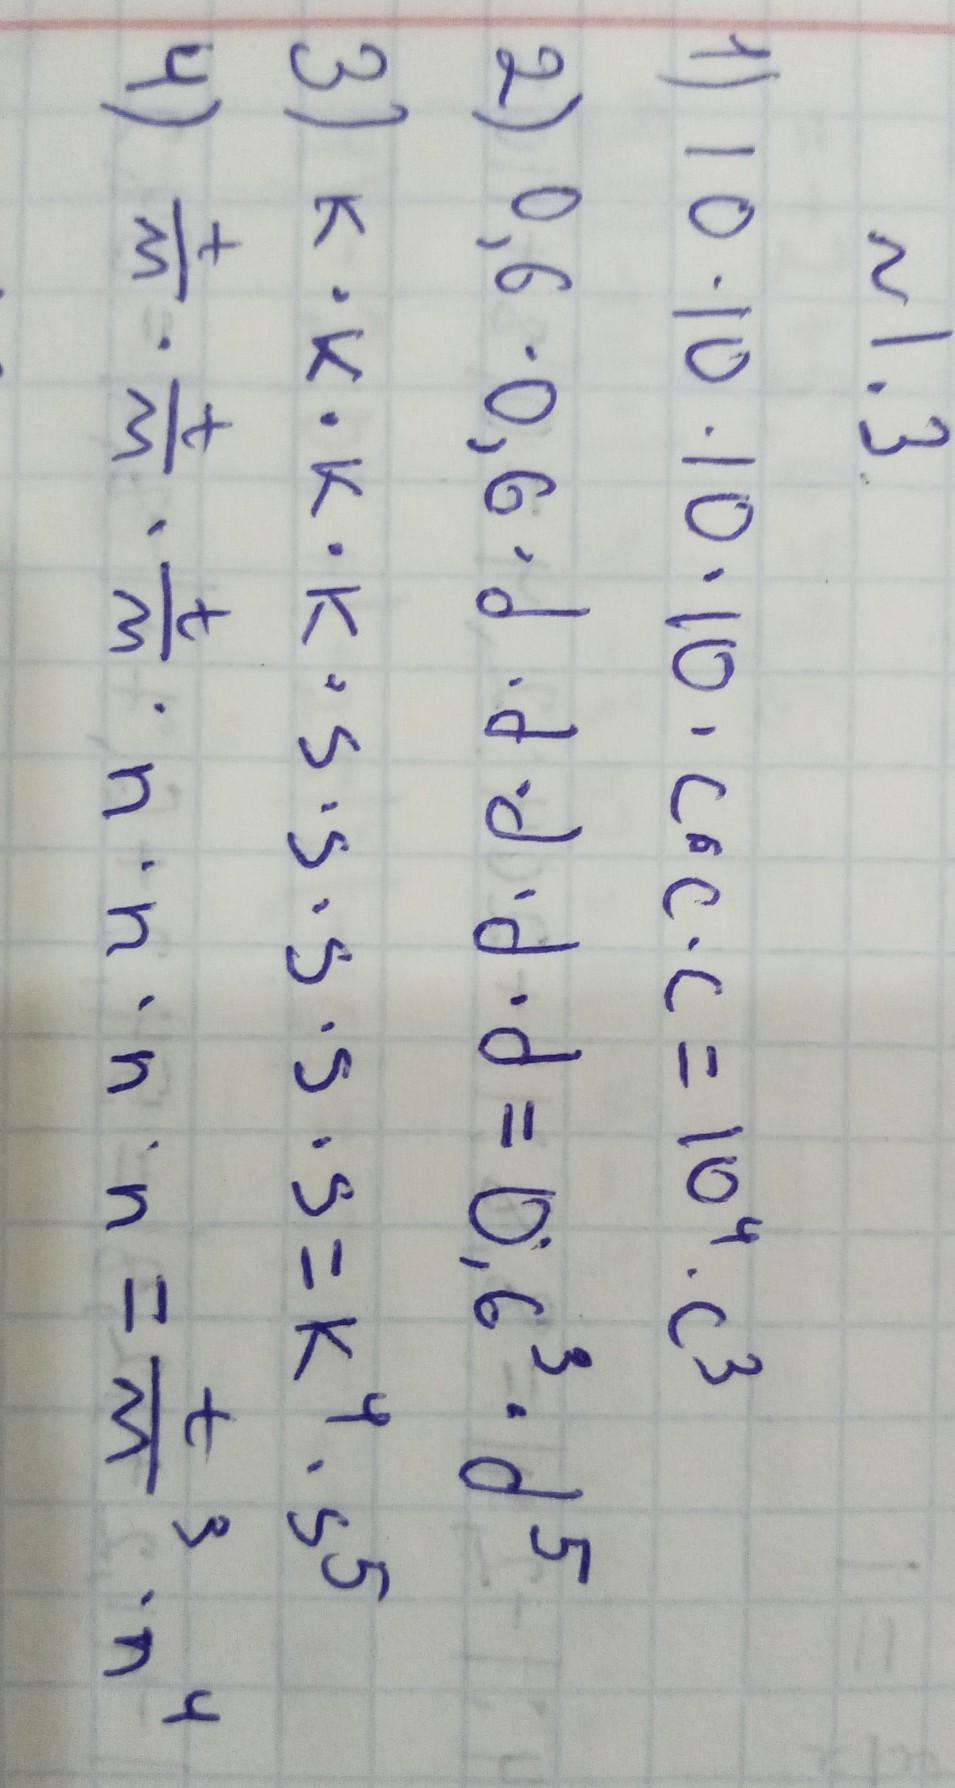 ~1.3
1) 10·10·10·10·c·c·c=10⁴·c³
2) 0,6·0,6·d·d·d·d·d=0,6³·d⁵
3) k·k·k·k·s·s·s·s·s=k⁴·s⁵
4) t/m·t/m·t/m·n·n·n·n=t/m³·n⁴